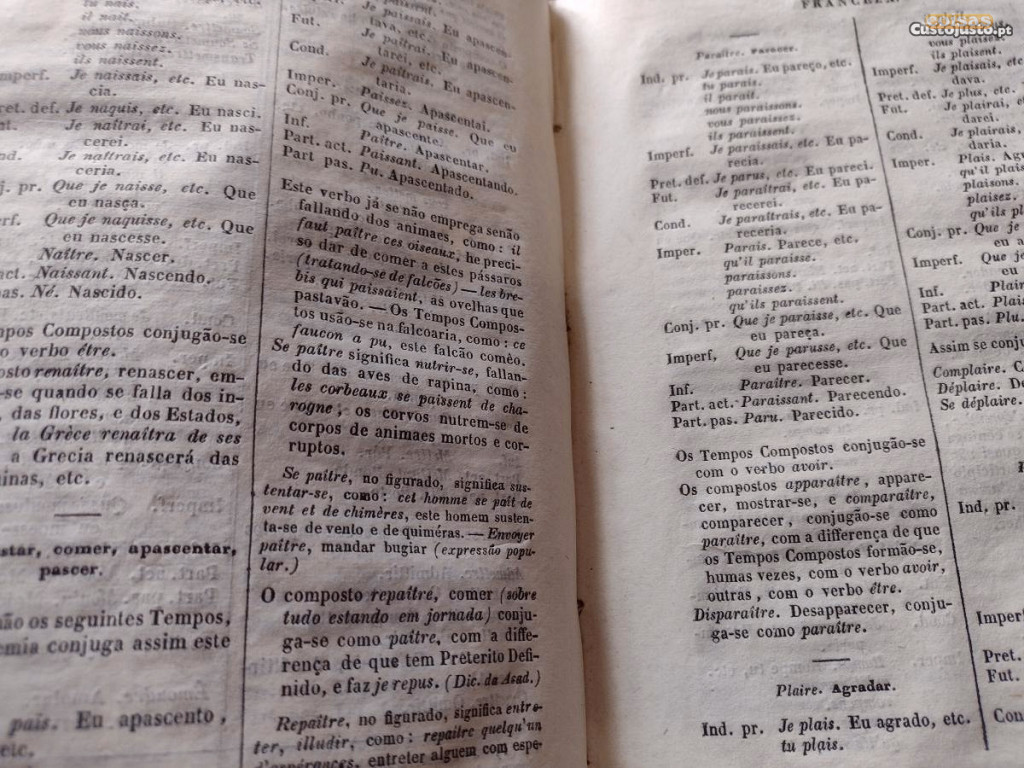 nous naissons.
vous naissez.
ils naissent.
Imperf. Je naissais, etc. Eu nas-
cia.
Pret. def. Je naquis, etc. Eu nasci.
Je naîtrai, etc. Eu nas-
cerei.
Je naîtrais, etc. Eu nas-
ceria.
pr. Que je naisse, etc. Que
eu nasça.
Que je naquisse, etc. Que
eu nascesse.
Naître. Nascer.
act. Naissant. Nascendo.
pas. Né. Nascido.
Tempos Compostos conjugão-se
o verbo être.
renaître, renascer, em-
-se quando se falla dos in-
, das flores, e dos Estados,
la Grèce renaîtra de ses
a Grecia renascerá das
etc.
comer, apascentar,
pascer.
os seguintes Tempos,
conjuga assim este
pais. Eu apascento,
etc.
Je paissais, etc.
Eu apascen-
tava, etc.
Fut. Je paîtrai, etc.
Eu apascen-
tarei, etc.
Cond. Je paîtrais, etc.
Eu apascen-
taria.
Imper. Paissez. Apascentai.
Conj. pr. Que je paisse. Que eu
apascente.
Inf. Paître. Apascentar.
Part. act. Paissant. Apascentando.
Part pas. Pu. Apascentado.
Este verbo já se não emprega senão
fallando dos animaes, como: il
faut paître ces oiseaux, he preci-
so dar de comer a estes pássaros
(tratando-se de falcões) — les bre-
bis qui paissaient, as ovelhas que
pastavão. — Os Tempos Compos-
tos usão-se na falcoaria, como: ce
faucon a pu, este falcão comêo.
Se paître significa nutrir-se, fallan-
do das aves de rapina, como:
les corbeaux se paissent de cha-
rogne, os corvos nutrem-se de
corpos de animaes mortos e cor-
ruptos.
Se paître, no figurado, significa sus-
tentar-se, como: cet homme se paît de
vent et de chimères, este homem susten-
ta-se de vento e de quiméras. — Envoyer
paître, mandar bugiar (expressão popu-
lar.)
O composto repaître, comer (sobre
tudo estando em jornada) conju-
ga-se como paître, com a diffe-
rença de que tem Preterito Defi-
nido, e faz je repus. (Dic. da Acad.)
Repaître, no figurado, significa entre-
ter, illudir, como: repaître quelqu'un
d'espérances, entreter alguem com espe-
Custojusto.pt
Paraître. Parecer.
Ind. pr. Je parais. Eu pareço, etc.
tu parais.
il paraît.
nous paraissons.
vous paraissez.
ils paraissent.
Imperf. Je paraissais, etc. Eu pa-
recia.
Pret. def. Je parus, etc. Eu pareci.
Fut. Je paraîtrai, etc. Eu pa-
recerei.
Cond. Je paraîtrais, etc. Eu pa-
receria.
Imper. Parais. Parece, etc.
qu'il paraisse.
paraissons.
paraissez.
qu'ils paraissent.
Conj. pr. Que je paraisse, etc. Que
eu pareça.
Imperf, Que je parusse, etc. Que
eu parecesse.
Inf. Paraître. Parecer.
Part. act. Paraissant. Parecendo.
Part. pas. Paru. Parecido.
Os Tempos Compostos conjugão-se
com o verbo avoir.
Os compostos apparaître, appare-
cer, mostrar-se, e comparaître,
comparecer, conjugão-se como
paraître, com a differença de que
os Tempos Compostos formão-se,
humas vezes, com o verbo avoir,
outras, com o verbo être.
Disparaître. Desapparecer, conju-
ga-se como paraître.
Plaire. Agradar.
Ind. pr. Je plais. Eu agrado, etc.
tu plais.
vous plaisez.
ils plaisent.
Imperf. Je plaisais, etc.
dava.
Pret. def. Je plus, etc.
Fut. Je plairai, etc.
darei.
Cond. Je plairais,
daria.
Imper. Plais.
qu'il plais
plaisons.
plaisez.
qu'ils
Conj. pr. Que je
eu a
Imperf. Que je
eu
Inf. Plair
Part. act. Plais
Part. pas. Plu.
Assim se conju
Complaire. C
Déplaire. De
Se déplaire.
Ind. pr.
Imperf
Pret.
Fut.
Con